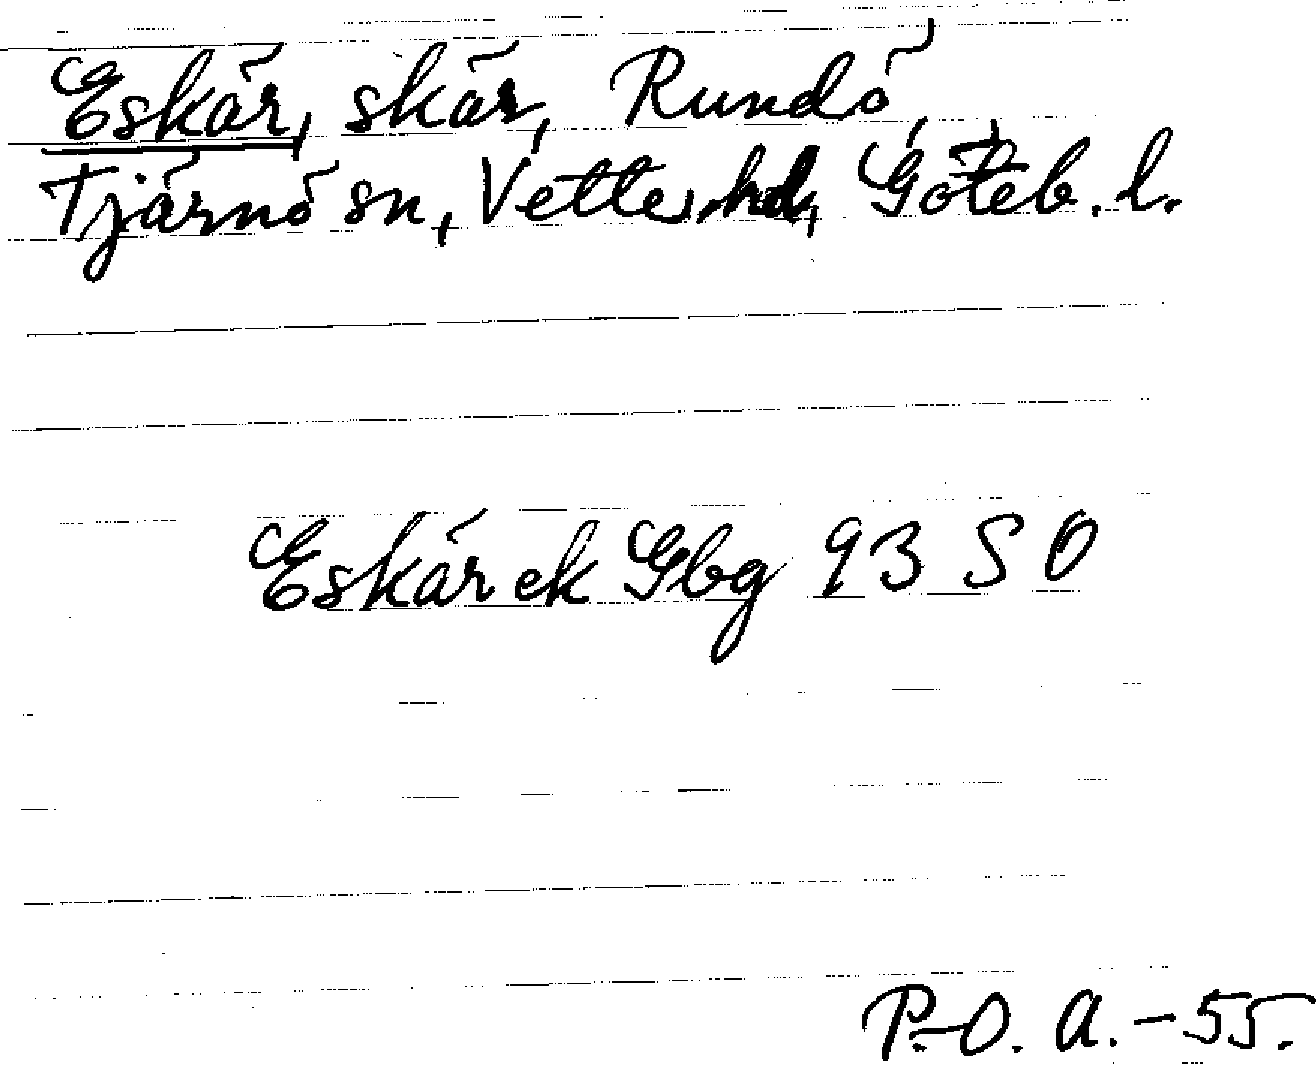 Eskär, skär, Rundö,
Tjärnö sn, Vette hd, Göteb. l.
Eskär ek Gbg 93 S O
P.-O. A. - 55.